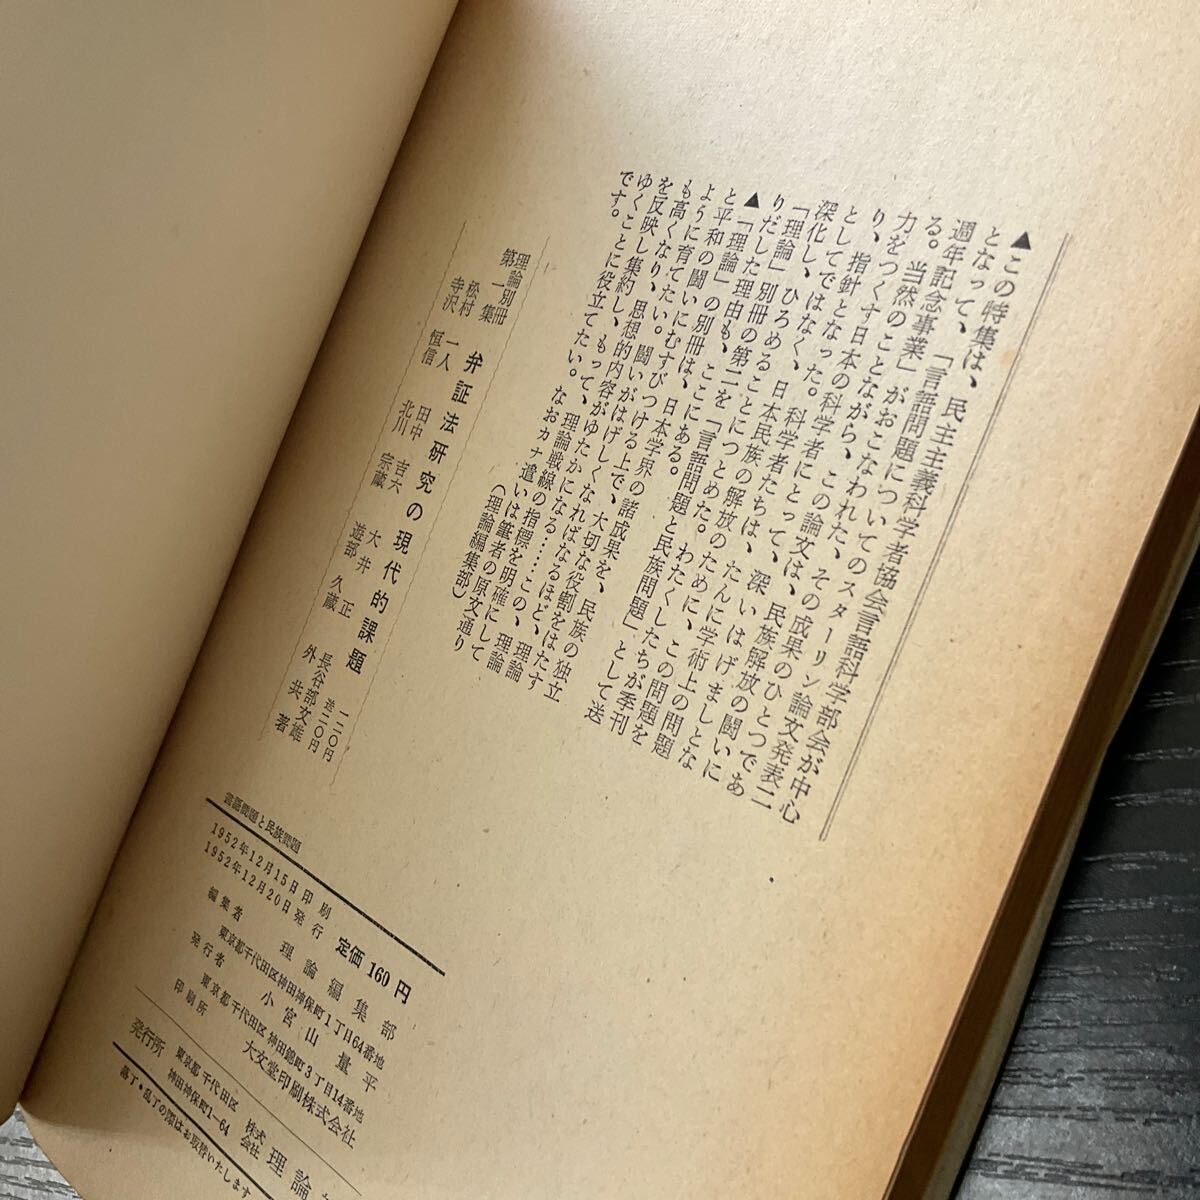 ▲この特集は、民主主義科学者協会言語科学部会が中心
となって、「言語問題についてのスターリン論文発表二
週年記念事業」がおこなわれた、その成果のひとつであ
る。当然のことながら、この論文は、民族解放の闘いに
力をつくす日本の科学者にとって、深いはげましとな
り、指針となった。科学者たちは、たんに学術上の問題
としてではなく、日本民族の解放のために、この問題を
深化し、ひろめることにつとめた。わたくしたちが季刊
「理論」別冊の第二を「言語問題と民族問題」として送
りだした理由も、ここにある。
▲「理論」の別冊は、日本学界の諸成果を、民族の独立
と平和の闘いにむすびつける上で、大切な役割をはたす
ように育てたい。闘いがはげしくなればなるほど、理論
も高くなり、思想的内容がゆたかになる……この、理論
を反映し集約し、もって、理論戦線の指標を明確にして
ゆくことに役立てたい。なおカナ遣いは筆者の原文通り
です。
(理論編集部)
理論別冊
第一集
弁証法研究の現代的課題
一二〇円
送二〇円
松村一人 田中吉六 大井正 長谷部文雄
寺沢恒信 北川宗蔵 遊部久蔵 外共著
言語問題と民族問題
1952年12月15日印刷
1952年12月20日発行
定価 160円
編集者 理論編集部
東京都千代田区神田神保町1丁目64番地
発行者 小宮山量平
東京都千代田区神田錦町3丁目14番地
印刷所 大文堂印刷株式会社
発行所
東京都千代田区
神田神保町1-64
株式会社
理論
落丁・乱丁の際はお取替いたします